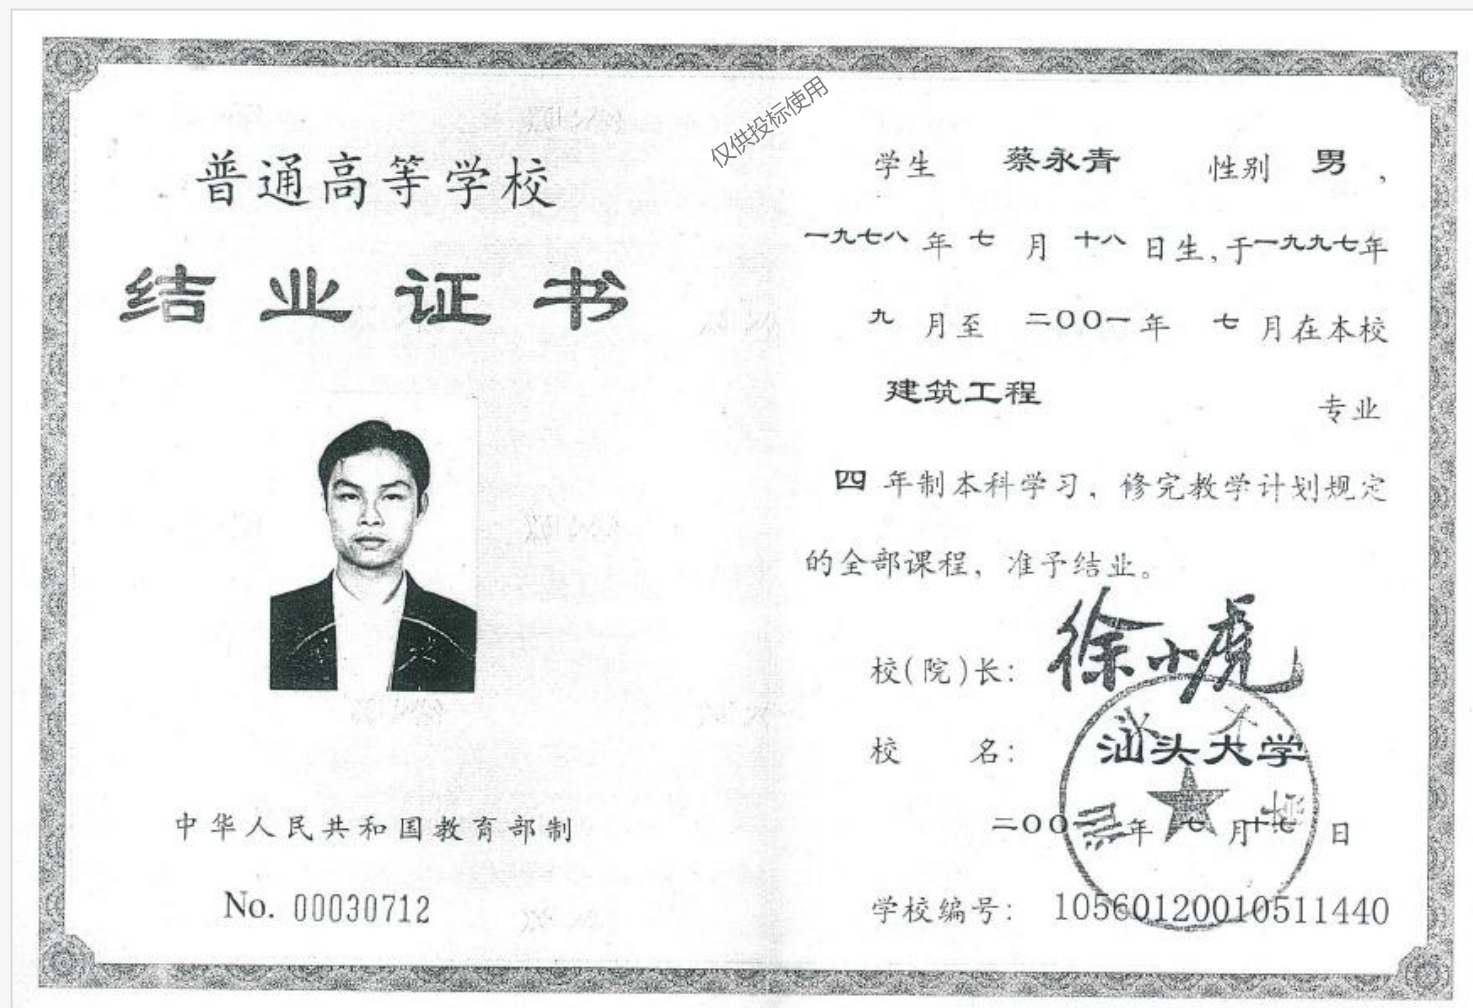 普通高等学校
结业证书
中华人民共和国教育部制
No. 00030712
仅供投标使用
学生 蔡永青 性别 男,
一九七八年七月十八日生,于一九九七年
九月至二〇〇一年七月在本校
建筑工程 专业
四年制本科学习, 修完教学计划规定
的全部课程, 准予结业。
校(院)长: 徐小虎
校 名: 汕头大学
二〇〇一年七月十七日
学校编号: 10560120010511440